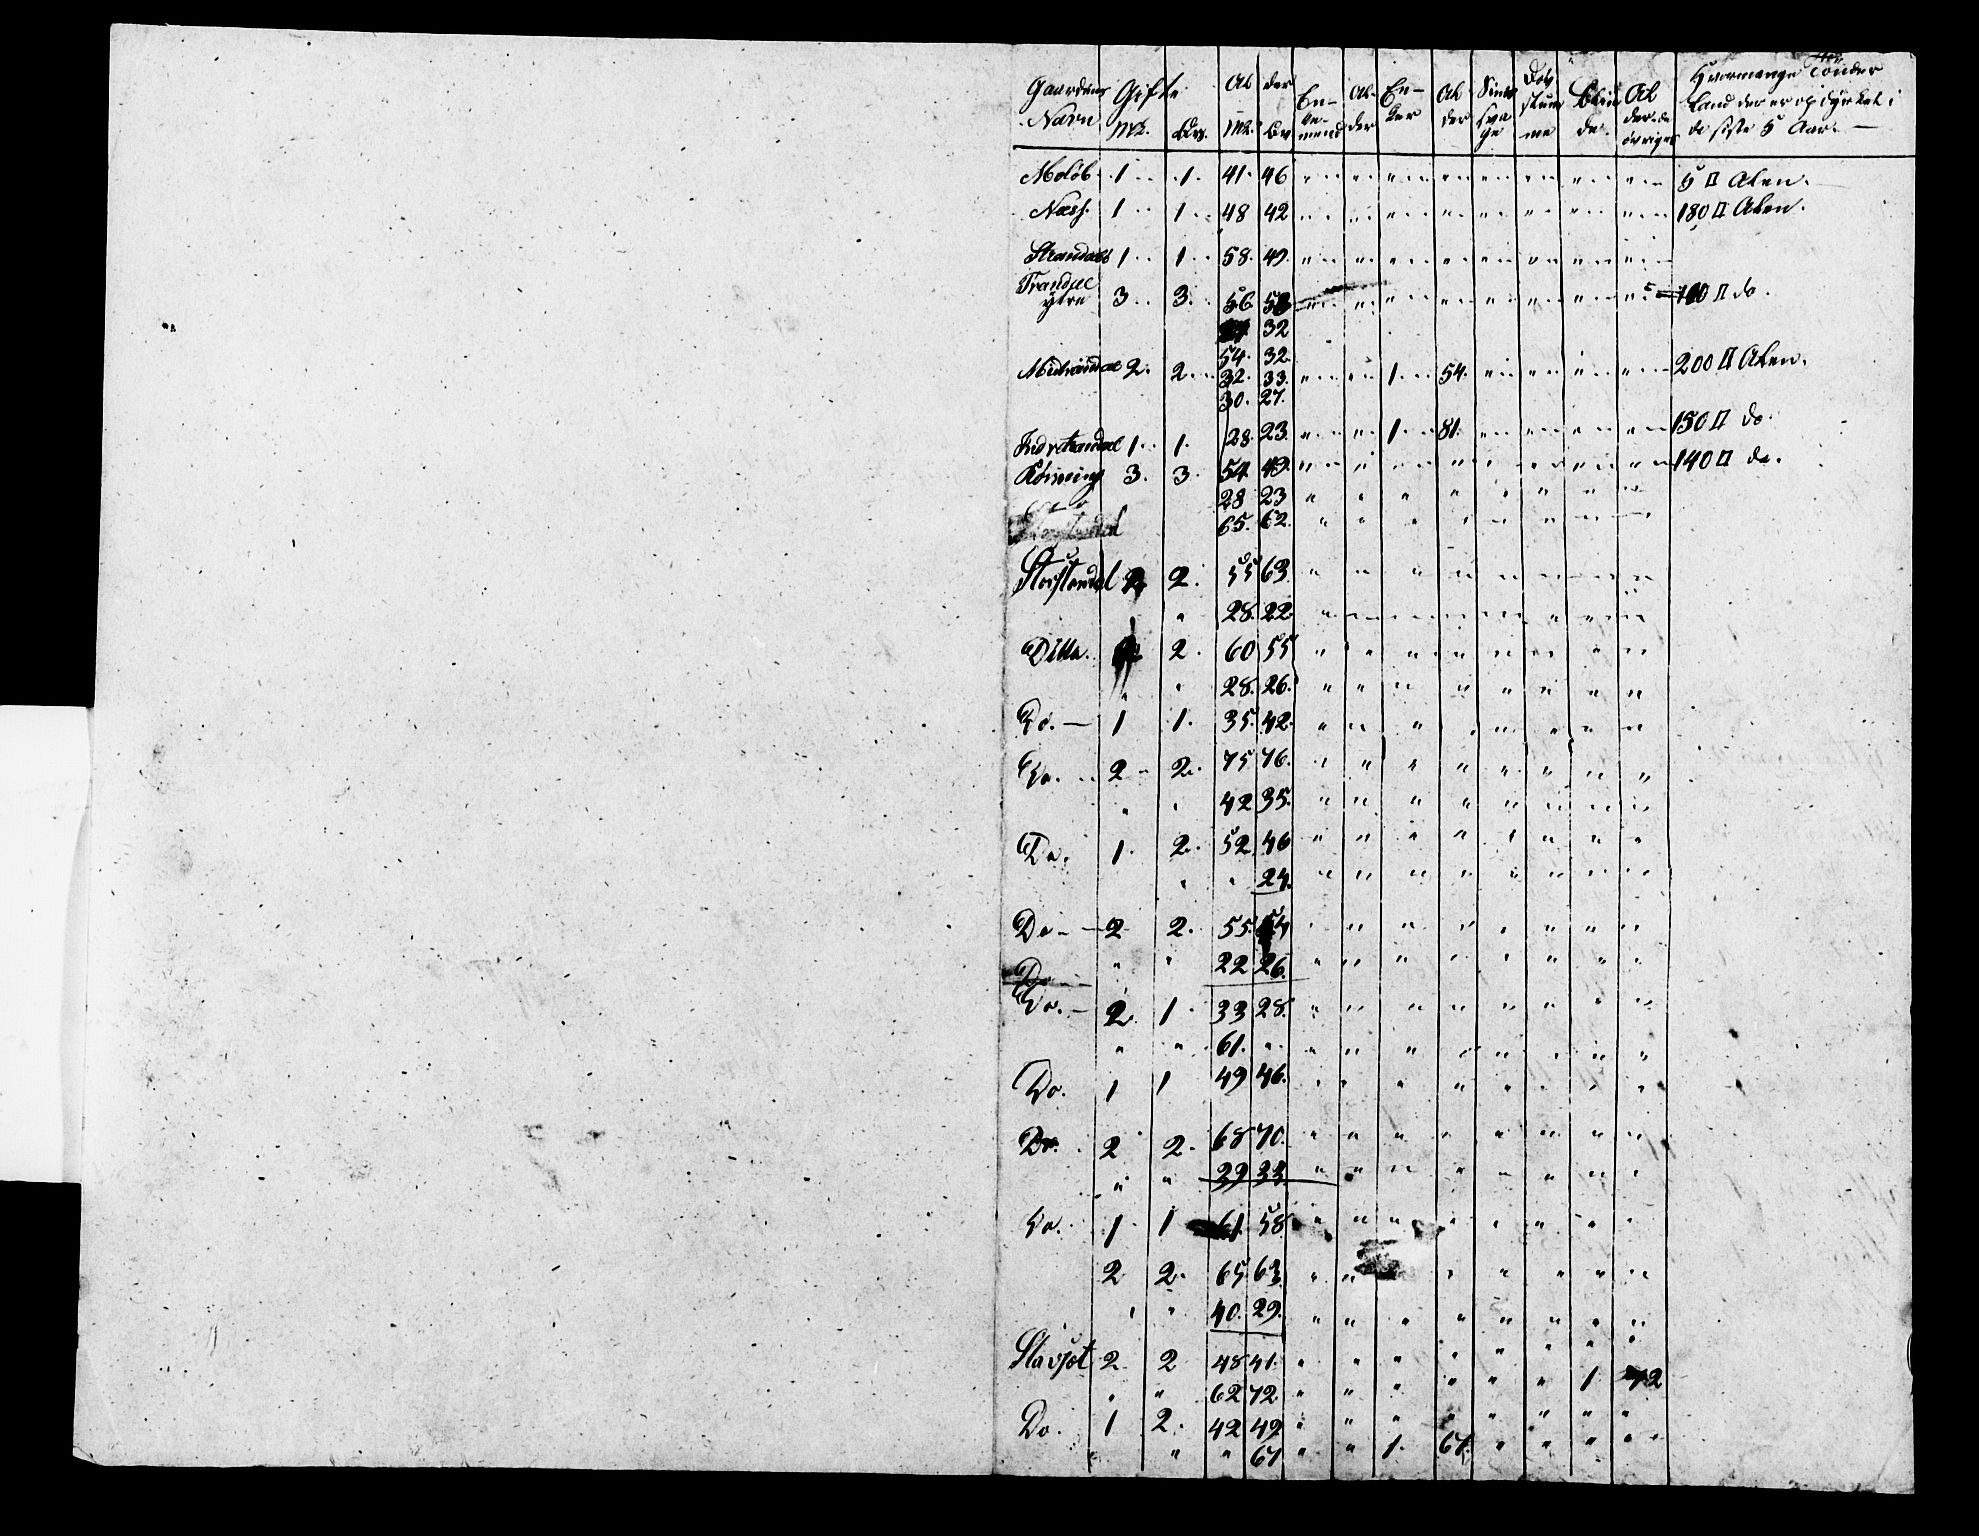 Gaardens Navn Gifte Mk. Qv. Alder Mk. Qv. Enkemend Alder Enker Alder Sindssvage Døvstumme Blinde Alder de øvriges Hvormange Tønder Land der er opdyrket i de siste 5 Aar.
1 1. 41. 46 " " " " " " " " 5 □ Alen.
Næss. 1 1 48 42 " " " " " " " " 180 □ Alen.
1 1 58. 49. " " " " " " " "
Trandal
ytre 3 3. 56 " " " " " " " " 100 □ do.
32
54. 32.
2. 2. 32. 33. " " 1 54. " " " " 200 □ Alen.
30. 27.
Indretrandal 1 1. 28. 23. " " 1 81. " " " " 150 □ do.
3. 3. 54. 49. " " " " " " " " 140 □ do.
28 23 " " " " " " " "
65. 62. " " " " " " " "
2 2. 55 63. " " " " " " " "
" 28. 22. " " " " " " " "
Ditto. 2. 60 55 " " " " " " " "
" " 28. 26. " " " " " " " "
Do. — 1 1. 35. 42. " " " " " " " "
Do. 2 2. 75 76. " " " " " " " "
" " 42 35. " " " " " " " "
Do. 1. 2. 52 46 " " " " " " " "
" " 24. " " " " " " " "
Do — 2 2. 55. 54 " " " " " " " "
" " 22 26. " " " " " " " "
Do
Do. — 2 1. 33 28. " " " " " " " "
" " 61. " " " " " " " " "
Do. 1 1 49 46. " " " " " " " "
Do. 2 2. 68 70. " " " " " " " "
" " 39 33 " " " " " " " "
Do. 1 1 61. 58. " " " " " " " "
2 2. 65 63. " " " " " " " "
" " 40. 29. " " " " " " " "
Slavset 2 2 48 41. " " " " " " " "
" " 62 72. " " " " " " 1 72
Do. 1 2. 42 49 " " " " " " " "
" " 67 " " 1. 67. " " " "